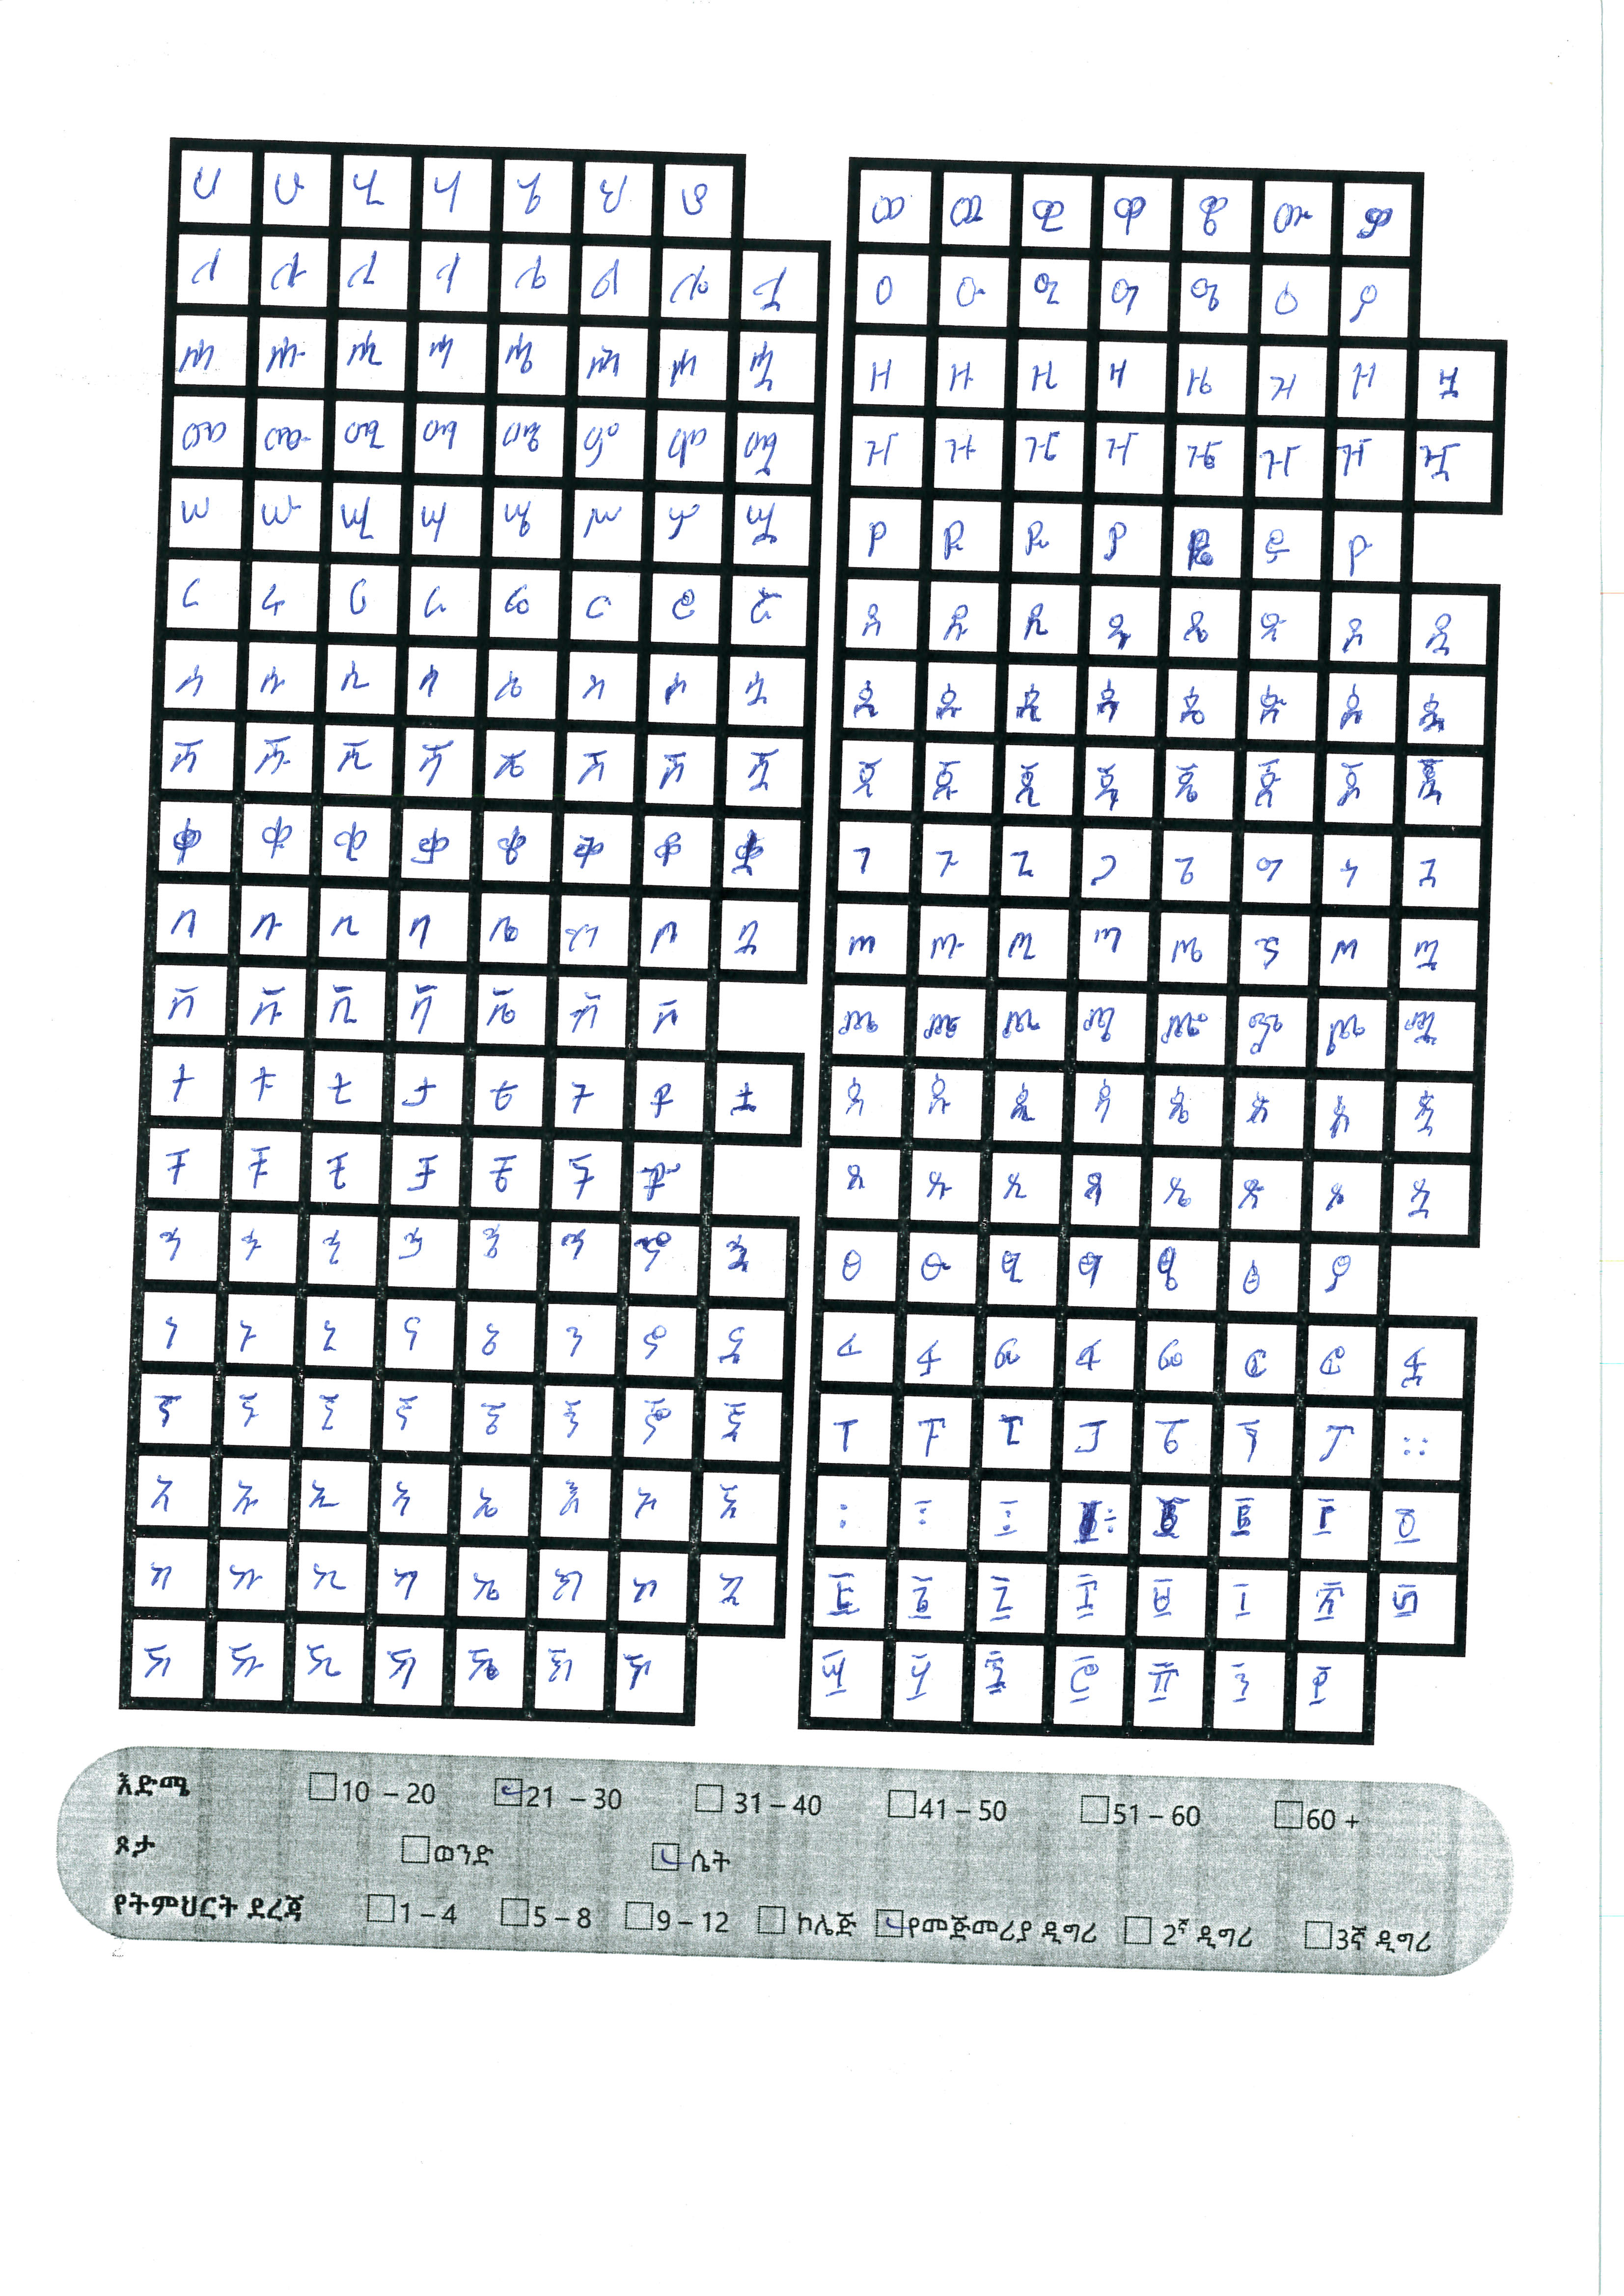 ሀ ሁ ሂ ሃ ሄ ህ ሆ
ለ ሉ ሊ ላ ሌ ል ሎ ሏ
ሐ ሑ ሒ ሓ ሔ ሕ ሖ ሗ
መ ሙ ሚ ማ ሜ ም ሞ ሟ
ሠ ሡ ሢ ሣ ሤ ሥ ሦ ሧ
ረ ሩ ሪ ራ ሬ ር ሮ ሯ
ሰ ሱ ሲ ሳ ሴ ስ ሶ ሷ
ሸ ሹ ሺ ሻ ሼ ሽ ሾ ሿ
ቀ ቁ ቂ ቃ ቄ ቅ ቆ ቋ
በ ቡ ቢ ባ ቤ ብ ቦ ቧ
ቨ ቩ ቪ ቫ ቬ ቭ ቮ
ተ ቱ ቲ ታ ቴ ት ቶ ቷ
ቸ ቹ ቺ ቻ ቼ ች ቾ
ኀ ኁ ኂ ኃ ኄ ኅ ኆ ኋ
ነ ኑ ኒ ና ኔ ን ኖ ኗ
ኘ ኙ ኚ ኛ ኜ ኝ ኞ ኟ
አ ኡ ኢ ኣ ኤ እ ኦ ኧ
ከ ኩ ኪ ካ ኬ ክ ኮ ኳ
ኸ ኹ ኺ ኻ ኼ ኽ ኾ
ወ ዉ ዊ ዋ ዌ ው ዎ
ዐ ዑ ዒ ዓ ዔ ዕ ዖ
ዘ ዙ ዚ ዛ ዜ ዝ ዞ ዟ
ዠ ዡ ዢ ዣ ዤ ዥ ዦ ዧ
የ ዩ ዪ ያ ዬ ይ ዮ
ደ ዱ ዲ ዳ ዴ ድ ዶ ዷ
ዸ ዹ ዺ ዻ ዼ ዽ ዾ ዿ
ጀ ጁ ጂ ጃ ጄ ጅ ጆ ጇ
ገ ጉ ጊ ጋ ጌ ግ ጎ ጓ
ጠ ጡ ጢ ጣ ጤ ጥ ጦ ጧ
ጨ ጩ ጪ ጫ ጬ ጭ ጮ ጯ
ጰ ጱ ጲ ጳ ጴ ጵ ጶ ጷ
ጸ ጹ ጺ ጻ ጼ ጽ ጾ ጿ
ፀ ፁ ፂ ፃ ፄ ፅ ፆ
ፈ ፉ ፊ ፋ ፌ ፍ ፎ ፏ
ፐ ፑ ፒ ፓ ፔ ፕ ፖ ።
፡ ፣ ፤ ፥ ፪ ፫ ፬
፭ ፮ ፯ ፰ ፱ ፲ ፳ ፴
፵ ፶ ፷ ፸ ፹ ፺ ፻
እድሜ 10 – 20 21 – 30 31 – 40 41 – 50 51 – 60 60 +
ጾታ ወንድ ሴት
የትምህርት ደረጃ 1 – 4 5 – 8 9 – 12 ኮሌጅ የመጀመሪያ ዲግሪ 2ኛ ዲግሪ 3ኛ ዲግሪ